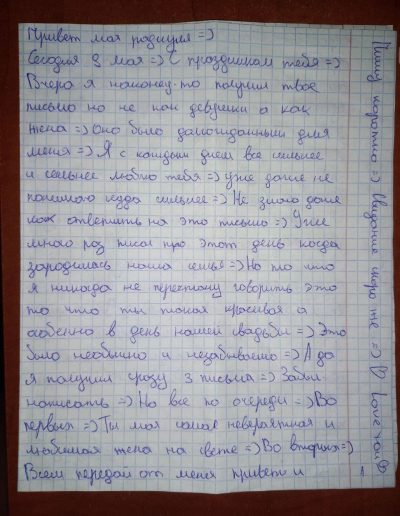 Привет моя роднуля =)
Сегодня 8 мая =) С праздником тебя =)
Вчера я наконец-то получил твоё
письмо но не как девушки а как
жена =) Оно было долгожданным для
меня =) Я с каждым днём всё сильнее
и сильнее люблю тебя =) уже даже не
понимаю куда сильнее =) Не знаю даже
как ответить на это письмо =) Уже
много раз писал про этот день когда
зародилась наша семья =) Но то что
я никогда не перестану говорить это
то что ты такая красивая а
особенно в день нашей свадьбы =) Это
было необычно и незабываемо =) А да
я получил сразу 3 письма =) Забыл
написать =) Но всё по очереди =) Во
первых =) Ты моя самая невероятная и
любимая жена на свете =) Во вторых =)
Всем передай от меня привет и
Пишу коротко =) Свидание скоро же =) I love you
1